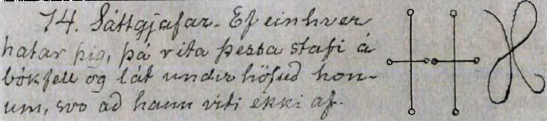 74. Sáttgjafar. Ef einhver
hatar þig, þá rita þessa stafi á
bókfell og lát under höfud hon-
um, svo ad hann viti ekki af.